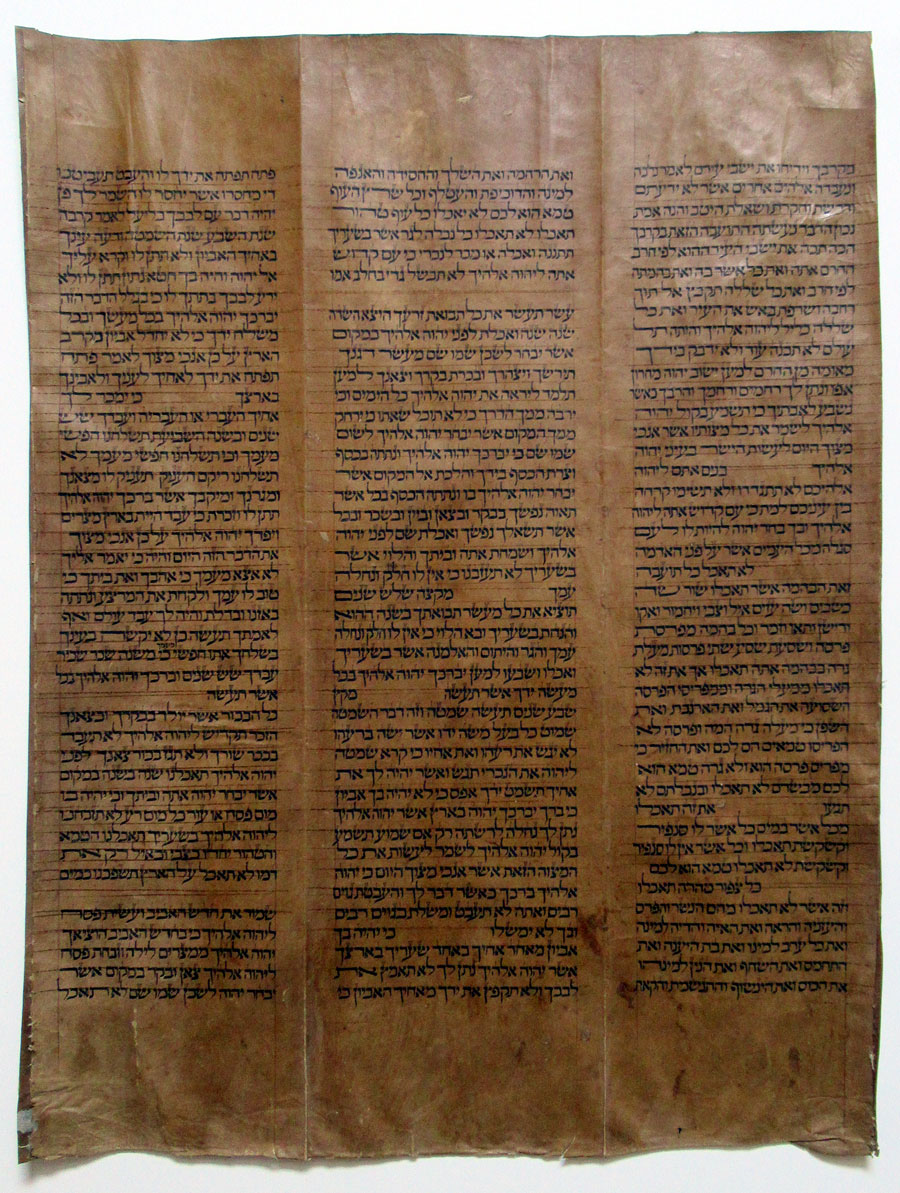 מקרבך וידיחו את ישבי עירם לאמר נלכה
ונעבדה אלהים אחרים אשר לא ידעתם
ודרשת וחקרת ושאלת היטב והנה אמת
נכון הדבר נעשתה התועבה הזאת בקרבך
הכה תכה את ישבי העיר ההוא לפי חרב
החרם אתה ואת כל אשר בה ואת בהמתה
לפי חרב ואת כל שללה תקבץ אל תוך
רחבה ושרפת באש את העיר ואת כל
שללה כליל ליהוה אלהיך והיתה תל
עולם לא תבנה עוד ולא ידבק בידך
מאומה מן החרם למען ישוב יהוה מחרון
אפו ונתן לך רחמים ורחמך והרבך כאשר
נשבע לאבתיך כי תשמע בקול יהוה
אלהיך לשמר את כל מצותיו אשר אנכי
מצוך היום לעשות הישר בעיני יהוה
אלהיך בנים אתם ליהוה
אלהיכם לא תתגדדו ולא תשימו קרחה
בין עיניכם למת כי עם קדוש אתה ליהוה
אלהיך ובך בחר יהוה להיות לו לעם
סגלה מכל העמים אשר על פני האדמה
לא תאכל כל תועבה
זאת הבהמה אשר תאכלו שור שה
כשבים ושה עזים איל וצבי ויחמור ואקו
ודישן ותאו וזמר וכל בהמה מפרסת
פרסה ושסעת שסע שתי פרסות מעלת
גרה בבהמה אתה תאכלו אך את זה לא
תאכלו ממעלי הגרה וממפריסי הפרסה
השסועה את הגמל ואת הארנבת ואת
השפן כי מעלה גרה המה ופרסה לא
הפריסו טמאים הם לכם ואת החזיר כי
מפריס פרסה הוא ולא גרה טמא הוא
לכם מבשרם לא תאכלו ובנבלתם לא
תגעו את זה תאכלו
מכל אשר במים כל אשר לו סנפיר
וקשקשת תאכלו וכל אשר אין לו סנפיר
וקשקשת לא תאכלו טמא הוא לכם
כל צפור טהרה תאכלו
וזה אשר לא תאכלו מהם הנשר והפרס
והעזניה והראה ואת האיה והדיה למינה
ואת כל ערב למינו ואת בת היענה ואת
התחמס ואת השחף ואת הנץ למינהו
את הכוס ואת הינשוף והתנשמת והקאת
ואת הרחמה ואת השלך והחסידה והאנפה
למינה והדוכיפת והעטלף וכל שרץ העוף
טמא הוא לכם לא יאכלו כל עוף טהור
תאכלו לא תאכלו כל נבלה לגר אשר בשעריך
תתננה ואכלה או מכר לנכרי כי עם קדוש
אתה ליהוה אלהיך לא תבשל גדי בחלב אמו
עשר תעשר את כל תבואת זרעך היצא השדה
שנה שנה ואכלת לפני יהוה אלהיך במקום
אשר יבחר לשכן שמו שם מעשר דגנך
תירשך ויצהרך ובכרת בקרך וצאנך למען
תלמד ליראה את יהוה אלהיך כל הימים וכי
ירבה ממך הדרך כי לא תוכל שאתו כי ירחק
ממך המקום אשר יבחר יהוה אלהיך לשום
שמו שם כי יברכך יהוה אלהיך ונתתה בכסף
וצרת הכסף בידך והלכת אל המקום אשר
יבחר יהוה אלהיך בו ונתתה הכסף בכל אשר
תאוה נפשך בבקר ובצאן וביין ובשכר ובכל
אשר תשאלך נפשך ואכלת שם לפני יהוה
אלהיך ושמחת אתה וביתך והלוי אשר
בשעריך לא תעזבנו כי אין לו חלק ונחלה
עמך מקצה שלש שנים
תוציא את כל מעשר תבואתך בשנה ההוא
והנחת בשעריך ובא הלוי כי אין לו חלק ונחלה
עמך והגר והיתום והאלמנה אשר בשעריך
ואכלו ושבעו למען יברכך יהוה אלהיך בכל
מעשה ידך אשר תעשה מקץ
שבע שנים תעשה שמטה וזה דבר השמטה
שמוט כל בעל משה ידו אשר ישה ברעהו
לא יגש את רעהו ואת אחיו כי קרא שמטה
ליהוה את הנכרי תגש ואשר יהיה לך את
אחיך תשמט ידך אפס כי לא יהיה בך אביון
כי ברך יברכך יהוה בארץ אשר יהוה אלהיך
נתן לך נחלה לרשתה רק אם שמוע תשמע
בקול יהוה אלהיך לשמר לעשות את כל
המצוה הזאת אשר אנכי מצוך היום כי יהוה
אלהיך ברכך כאשר דבר לך והעבטת גוים
רבים ואתה לא תעבט ומשלת בגוים רבים
ובך לא ימשלו כי יהיה בך
אביון מאחד אחיך באחד שעריך בארצך
אשר יהוה אלהיך נתן לך לא תאמץ את
לבבך ולא תקפץ את ידך מאחיך האביון כי
פתח תפתח את ידך לו והעבט תעביטנו
די מחסרו אשר יחסר לו השמר לך פן
יהיה דבר עם לבבך בליעל לאמר קרבה
שנת השבע שנת השמטה ורעה עינך
באחיך האביון ולא תתן לו וקרא עליך
אל יהוה והיה בך חטא נתון תתן לו ולא
ירע לבבך בתתך לו כי בגלל הדבר הזה
יברכך יהוה אלהיך בכל מעשך ובכל
משלח ידך כי לא יחדל אביון מקרב
הארץ על כן אנכי מצוך לאמר פתח
תפתח את ידך לאחיך לעניך ולאבינך
בארצך כי ימכר לך
אחיך העברי או העבריה ועבדך שש
שנים ובשנה השביעת תשלחנו חפשי
מעמך וכי תשלחנו חפשי מעמך לא
תשלחנו ריקם העניק תעניק לו מצאנך
ומגרנך ומיקבך אשר ברכך יהוה אלהיך
תתן לו וזכרת כי עבד היית בארץ מצרים
ויפדך יהוה אלהיך על כן אנכי מצוך
את הדבר הזה היום והיה כי יאמר אליך
לא אצא מעמך כי אהבך ואת ביתך כי
טוב לו עמך ולקחת את המרצע ונתתה
באזנו ובדלת והיה לך עבד עולם ואף
לאמתך תעשה כן לא יקשה בעינך
בשלחך אתו חפשי כי משנה שכר שכיר
עבדך שש שנים וברכך יהוה אלהיך בכל
אשר תעשה
כל הבכור אשר יולד בבקרך ובצאנך
הזכר תקדיש ליהוה אלהיך לא תעבד
בבכר שורך ולא תגז בכור צאנך לפני
יהוה אלהיך תאכלנו שנה בשנה במקום
אשר יבחר יהוה אתה וביתך וכי יהיה בו
מום פסח או עור כל מום רע לא תזבחנו
ליהוה אלהיך בשעריך תאכלנו הטמא
והטהור יחדו כצבי וכאיל רק את
דמו לא תאכל על הארץ תשפכנו כמים
שמור את חדש האביב ועשית פסח
ליהוה אלהיך כי בחדש האביב הוציאך
יהוה אלהיך ממצרים לילה וזבחת פסח
ליהוה אלהיך צאן ובקר במקום אשר
יבחר יהוה לשכן שמו שם לא תאכל